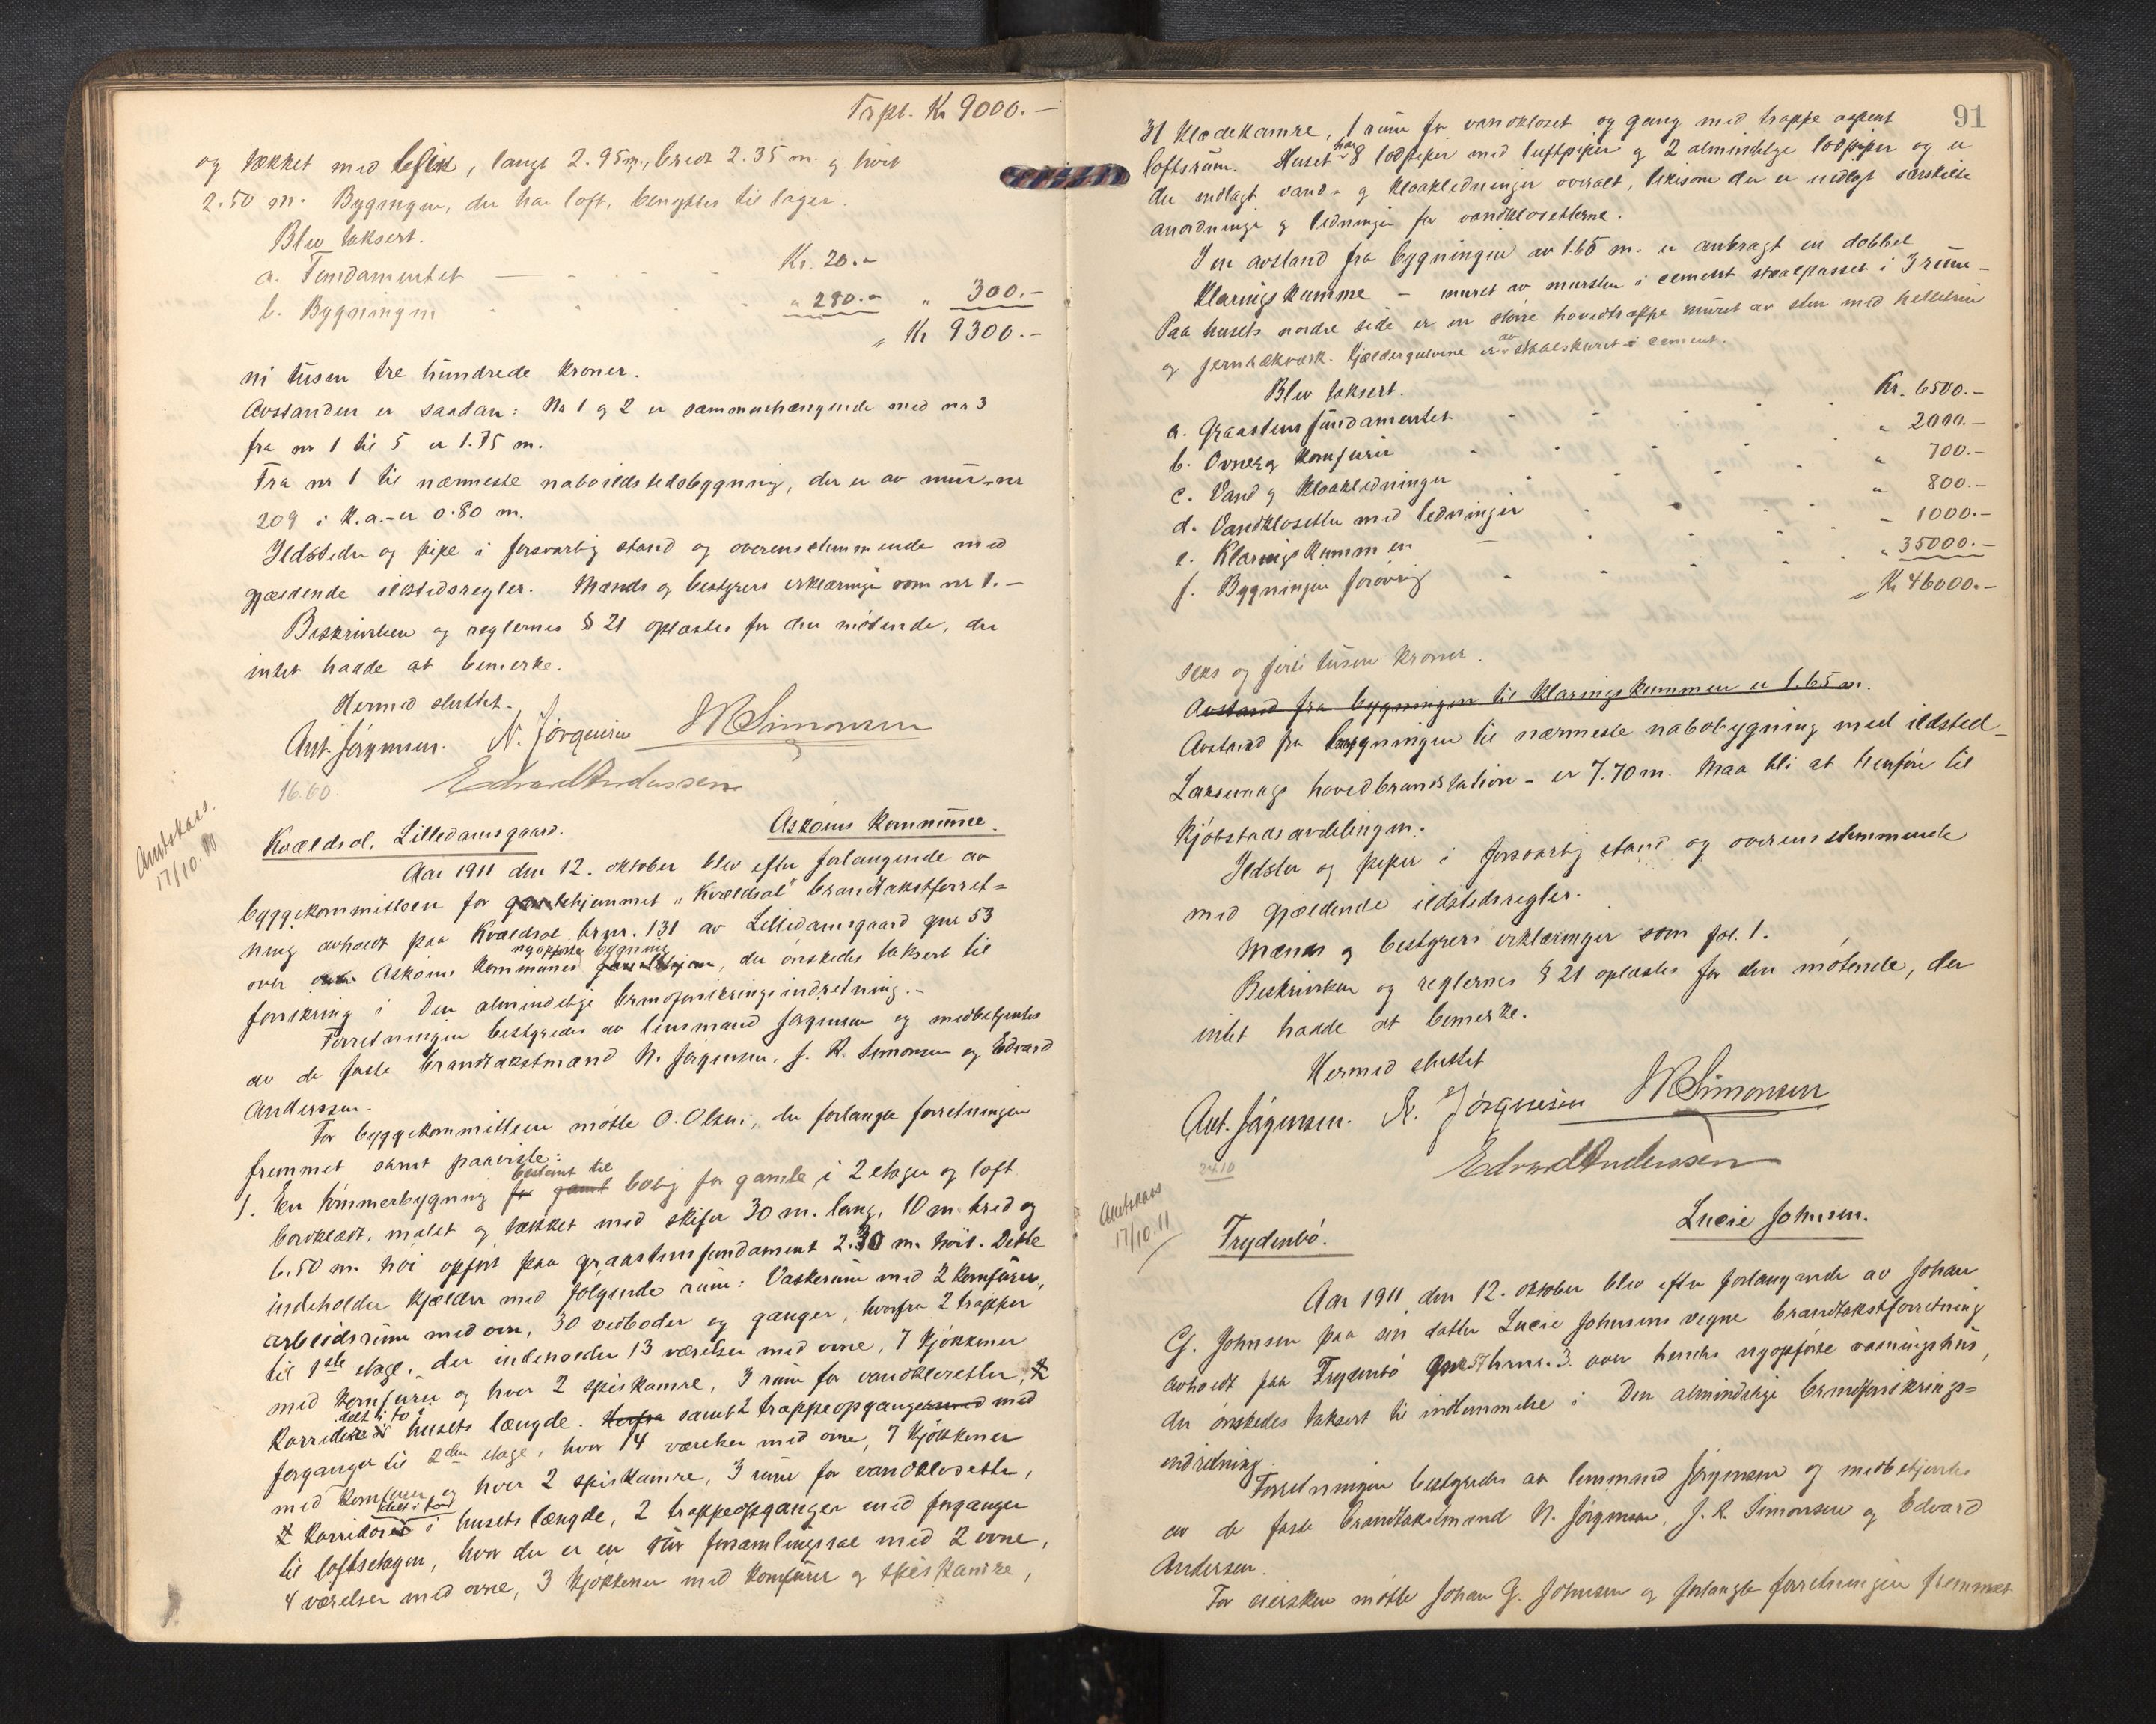 Trpt. Kr 9000.-
og tækket med , langt 2.95 m., bredt 2.35 m. og höit
2.50 m. Bygningen, der har loft, benyttes til lager.
Blev taksert.
a. Fundamentet - Kr. 20.-
b. Bygningen " 280.- " 300.-
" Kr 9300.-
ni tusen tre hundrede kroner.
Avstanden er saadan: Nr 1 og 2 er sammenhængende med nr 3
fra nr 1 til 5 er 1.75 m.
Fra nr 1 til nærmeste naboildstedsbygning, der er av mur - nr
209 i K.a. - er 0.80 m.
Ildsteder og pipe i forsvarlig stand og overensstemmende med
gjældende ildstedsregler. Mænds og bestyrers erklæringer som nr 1. -
Beskrivelsen og reglernes § 21 oplæstes for den mötende, der
intet hadde at bemerke.
Hermed sluttet.
Ant. Jörgensen. N. Jörgensen JRSimonsen
16.60. Edvard Anderssen
Amtskas.
17/10.11
Kvældsol, Lilledamsgaard. Askøens kommune.
Aar 1911 den 12. oktober blev efter forlangende av
byggekommitteen for gamlehjemmet "Kvældsol" brandtakstforret=
ning avholdt paa Kvældsol brnr. 131 av Lilledamsgaard gnr 53
over Askøens kommunes nyopförte bygning, der önskedes taksert til
forsikring i Den almindelige brandforsikringsindretning.-
Forretningen bestyredes av lensmand Jörgensen og medbetjentes
av de faste brandtakstmænd N. Jörgensen, J. R. Simonsen og Edvard
Anderssen.
For byggekommitteen mötte O. Olsen, der forlangte forretningen
fremmet samt paaviste:
1. En tömmerbygning bestemt til bolig for gamle i 2 etager og loft
bordklædt, malet og tækket med skifer 30 m. lang, 10 m bred og
6.50 m. höi opfört paa graastensfundament 2.30 m. höit. Dette
indeholder kjælder med fölgende rum: Vaskerum med 2 komfurer,
arbeidsrum med ovn, 30 vedboder og ganger, hvorfra 2 trapper
til 1ste etage, der indeholder 13 værelser med ovne, 7 kjökkener
med komfurer og hver 2 spiskamre, 3 rum for vandklosetter,
korridor delt i to i husets længde. samt 2 trappeopganger med
forganger til 2den etage, hvor 14 værelser med ovne, 7 kjökkener
med komfurer og hver 2 spiskamre, 3 rum for vandklosetter,
korridor delt i to i husets længde, 2 trappeopganger med forganger
til loftsetagen, hvor der er en stor forsamlingssal med 2 ovne,
4 værelser med ovne, 3 kjökkener med komfurer og spiskamre,
91
31 klædekamre, 1 rum for vandkloset og gang med trappe
loftsrum. Huset har 8 lodpiper med luftpiper og 2 almindelige lodpiper og er
der indlagt vand- og kloakledninger overalt, likesom der er indlagt særskilte
anordninger og ledninger for vandklosetterne.
I en avstand fra bygningen av 1.65 m. er anbragt en dobbel
klaringskumme - muret av mursten i cement staalpusset i 3 rum -
Paa husets nordre side er en större hovedtrappe muret av sten med helletrin
og jernrækværk. Kjældergulvene er av staalskuret cement.
Blev taksert.
a. Graastensfundamentet Kr. 6500.-
b. Ovner og komfurer " 2000.-
c. Vand og kloakledninger " 700.-
d. Vandklosetter med ledninger " 800.-
e. Klaringskummen " 1000.-
f. Bygningen forövrig " 35000.-
Kr 46000.-
seks og firti tusen kroner.
Avstand fra bygningen til klaringskummen er 1.65 m.
Avstand fra bygningen til nærmeste nabobygning med ildsted -
Laksevaags hovedbrandstation - er 7.70 m. Maa bli at henföre til
kjöbstadsavdelingen.
Ildsteder og piper i forsvarlig stand og overensstemmende
med gjældende ildstedsregler.
Mænds og bestyrers erklæringer som fol. 1.
Beskrivelsen og reglernes § 21 oplæstes for den mötende, der
intet hadde at bemerke.
Hermed sluttet
Ant. Jörgensen. N. Jörgensen JRSimonsen
24.10 Edvard Anderssen
Amtskas
17/10.11
Frydenbö. Lucie Johnsen.
Aar 1911 den 12. oktober blev efter forlangende av Johan
G. Johnsen paa sin datter Lucie Johnsens vegne brandtakstforretning
avholdt paa Frydenbö brnr. 3. over hendes nyopförte vaaningshus,
der önskedes taksert til indlemmelse i Den almindelige brandforsikrings=
indretning.
Forretningen bestyredes av lensmand Jörgensen og medbetjentes
av de faste brandtakstmænd N. Jörgensen, J. R. Simonsen og Edvard
Andersen.
For eiersken mötte Johan G. Johnsen og forlangte forretningen fremmet